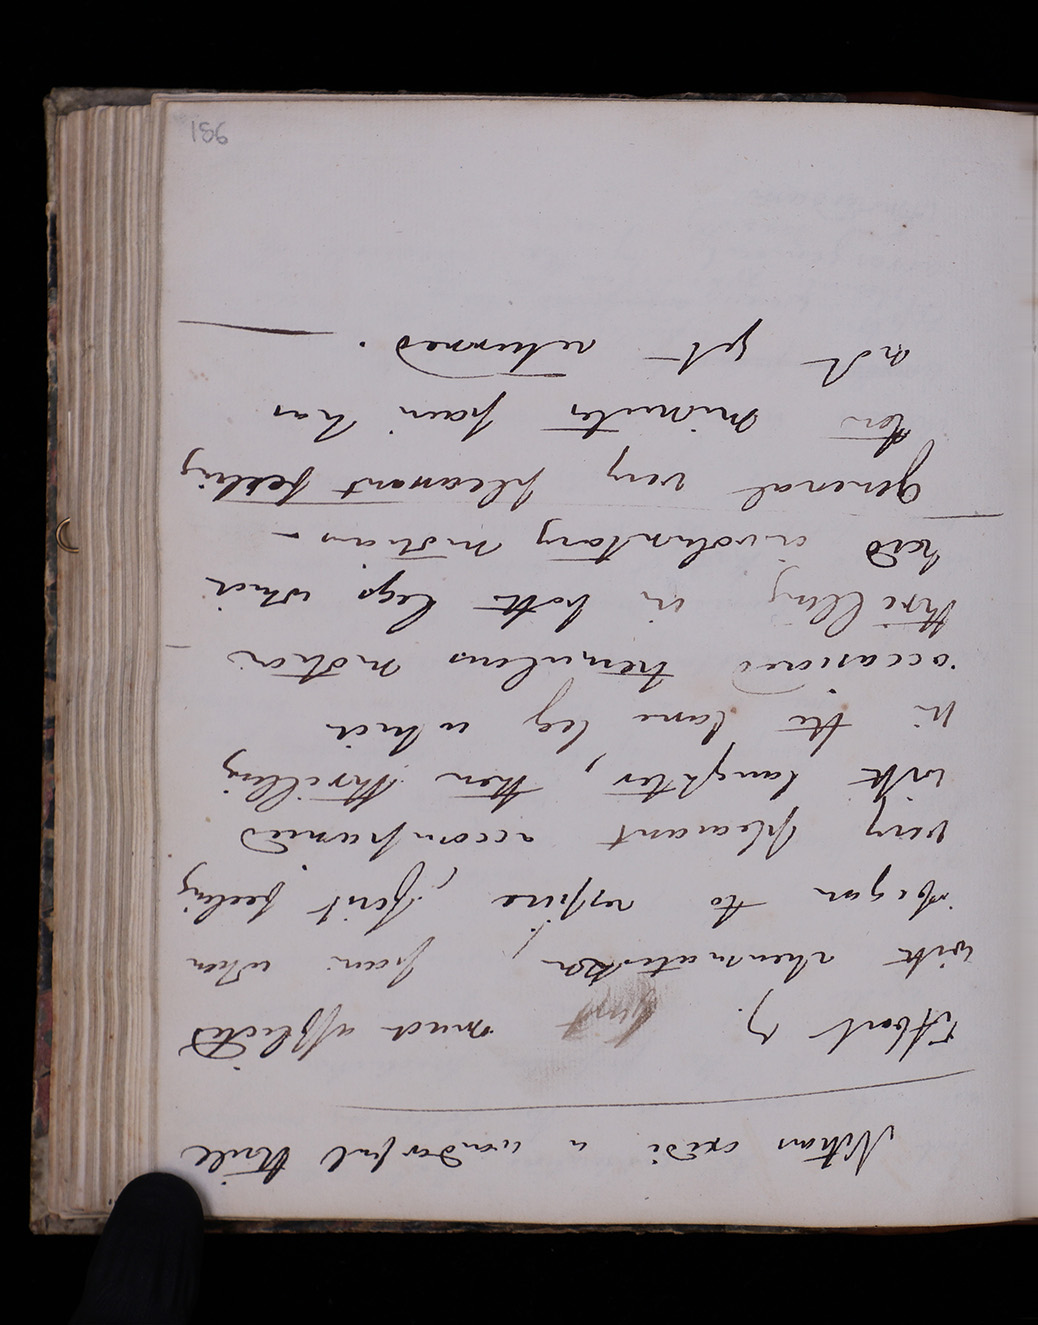 Nitrous oxide a wonderful thrill
About 7. much afflicted
with rheumatism, pain when
began to respire, first feeling
very pleasant accompanied
with laughter, then thrilling
in the lame leg which
occasioned tremulous motion
thrilling in both legs which
had involuntary motions -
General very pleasant feeling
ten minutes pain has
not yet returned.
186